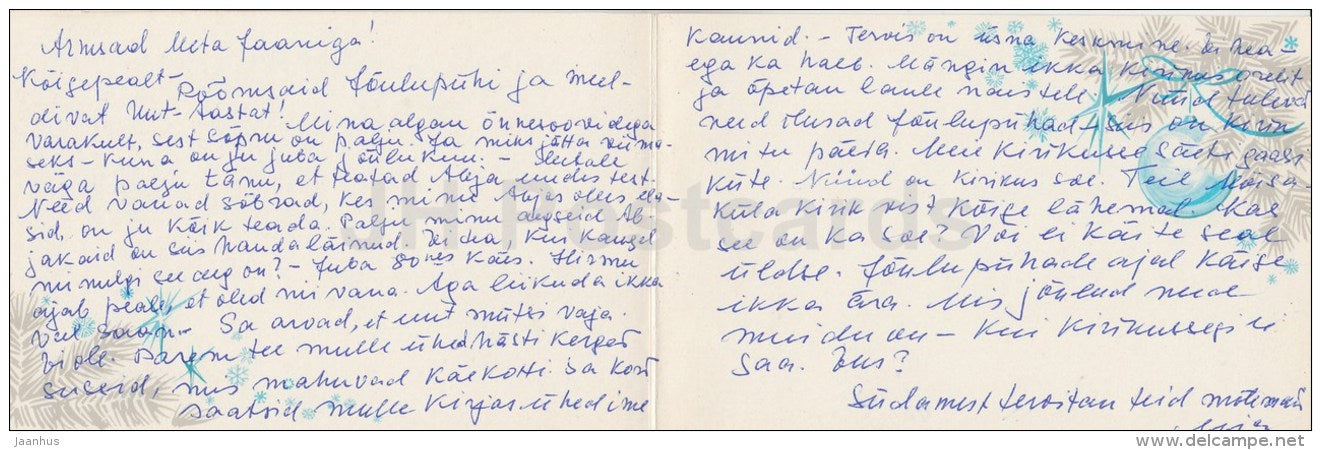 Armsad Meta Jaaniga!
Kõigepealt - Rõõmsaid Jõulupühi ja meel-
divat Uut-Aastat!
Mina algan õnnesoovidega
varakult, sest sõpru on palju. Ja miks jätta viima-
seks - kuna on ju juba jõulukuu. - Sulale
väga palju tänu, et teatad Abja uudistest.
Need vanad sõbrad, kes minu Abjas oles ela-
sid, on ju kõik teada. Palju minu aegseid Ab-
jakaid on siis manalaläinud. Ei tea, kui kaugel
minulgi see aeg on? - Juba 80nes käes. Hirmu
ajab peale, et oled nii vana. Aga liikuda ikka
veel saan - Sa arvad, et uut mütsi vaja.
Ei ole. Parem tee mulle ühed hästi kerged
sussid, mis mahuvad käekotti. Sa kord
saatsid mulle kirjas ühed ime
kaunid. - Tervis on üsna keskmine. Ei hea-
ega ka halb. Mängin ikka kirikus orelit
ja õpetan laule naistele. Nüüd tulevad
need ilusad jõulupühad - siis on kirik
mitu päeva. Meie kirikusse säeti gaasi
küte. Nüüd on kirikus soe. Teil Mõisa-
küla kirik vist kõige lähemal. Kas
see on ka soe? Või ei käi te seal
üldse. Jõulupühade ajal käige
ikka ära. Mis jõulud need
muidu on - kui kirikussegi ei
saa. Eks?
Südamest tervitan teid mõlemaid
JH Postcards
jaanhus
www.delcampe.net